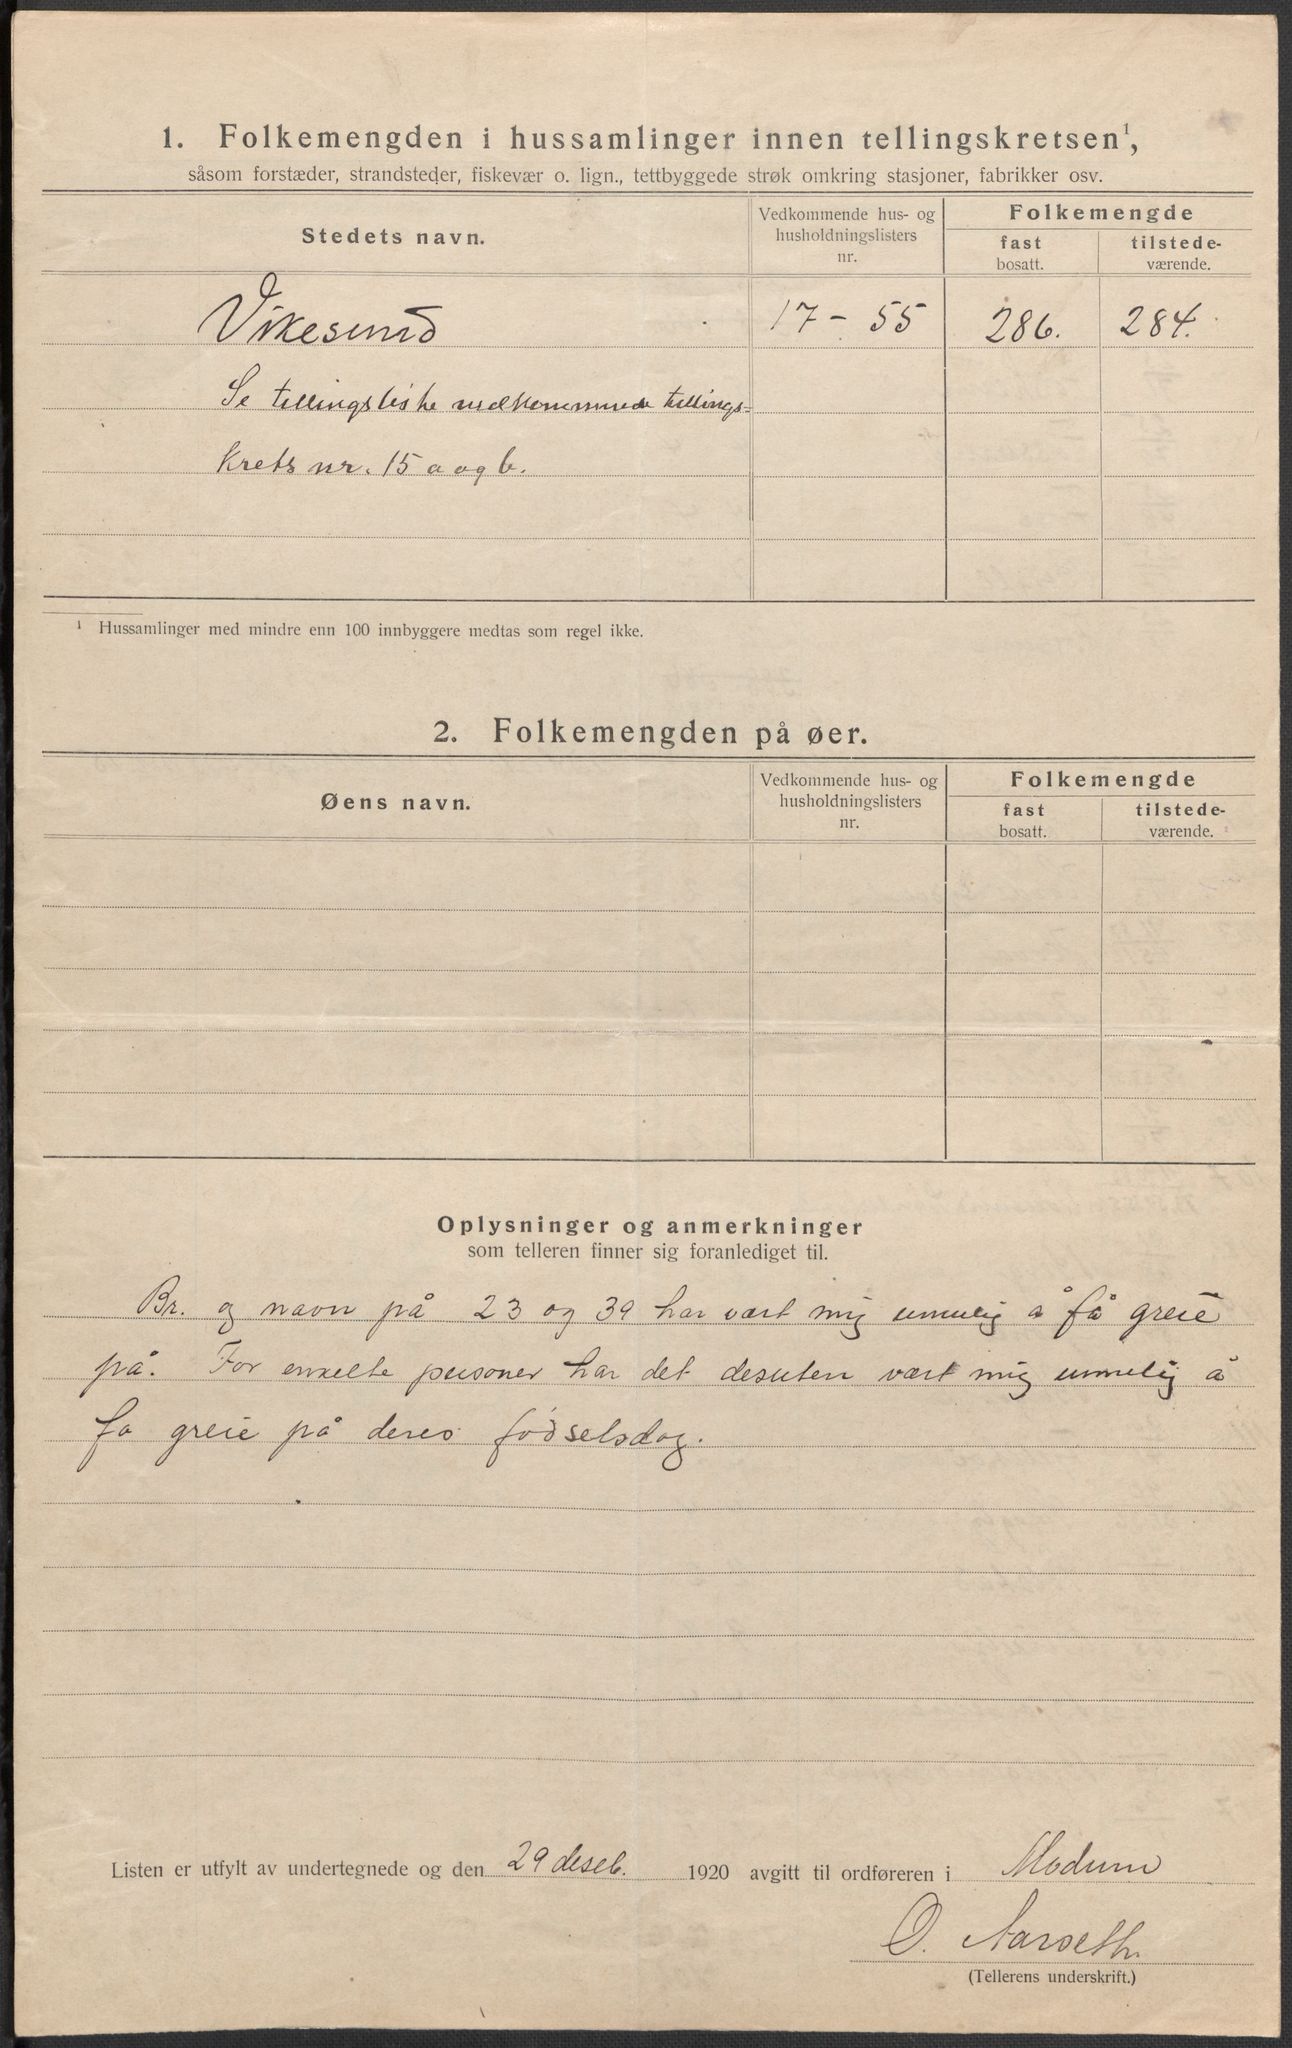 1. Folkemengden i hussamlinger innen tellingskretsen¹,
såsom forstæder, strandsteder, fiskevær o. lign., tettbyggede strøk omkring stasjoner, fabrikker osv.
Stedets navn.
Vedkommende hus- og
husholdningslisters
nr.
Folkemengde
fast
bosatt.
tilstede-
værende.
Vikesund 17 - 55 286. 284.
Se tellingsliste vedkommende tellings-
krets nr. 15 a og b.
¹ Hussamlinger med mindre enn 100 innbyggere medtas som regel ikke.
2. Folkemengden på øer.
Øens navn.
Vedkommende hus- og
husholdningslisters
nr.
Folkemengde
fast
bosatt.
tilstede-
værende.
Oplysninger og anmerkninger
som telleren finner sig foranlediget til.
Br. og navn på 23 og 39 har vært mig umulig å få greie
på. For enkelte personer har det desuten vært mig umulig å
fa greie på deres fødselsdag.
Listen er utfylt av undertegnede og den 29 deseb. 1920 avgitt til ordføreren i Modum
O. Aarseth.
(Tellerens underskrift.)